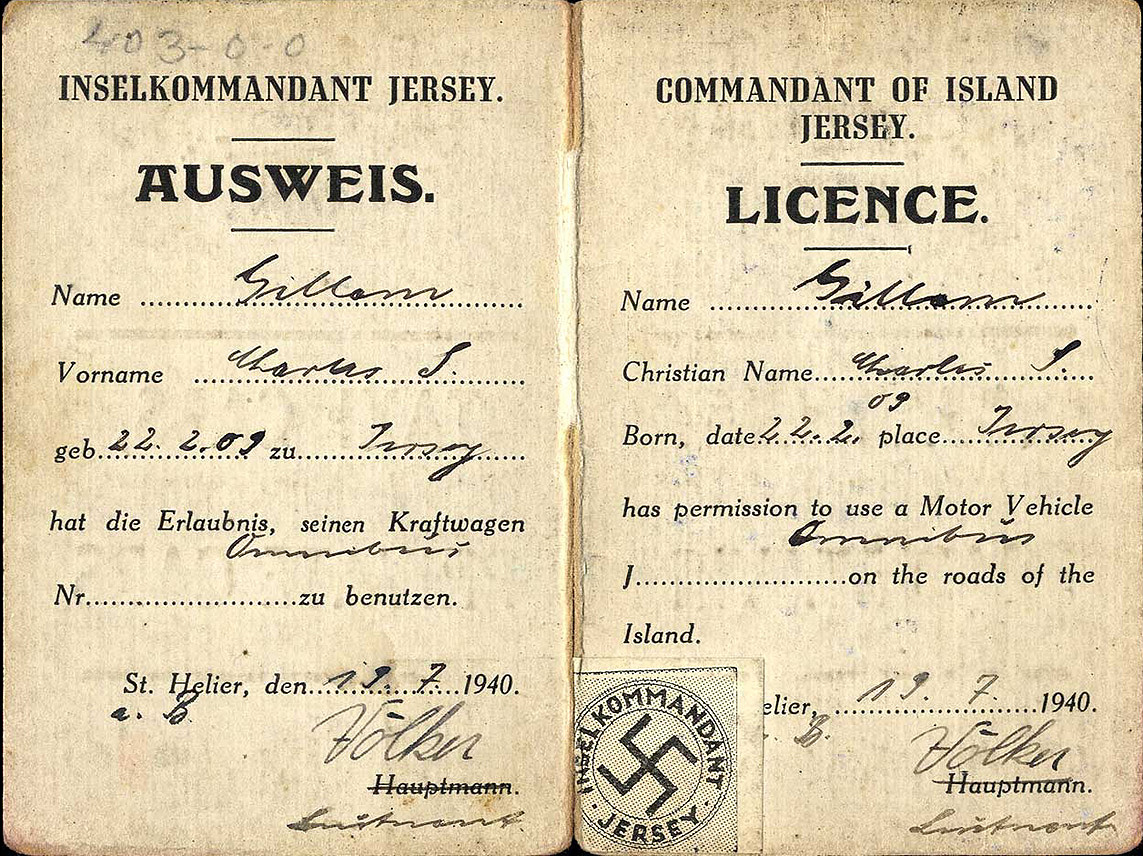 403-0-0
INSELKOMMANDANT JERSEY.
AUSWEIS.
Name Gillam
Vorname Charles S.
geb. 22.2.09 zu Jersey
hat die Erlaubnis, seinen Kraftwagen
Omnibus
Nr. zu benutzen.
St. Helier, den 19.7. 1940.
a. B.
Völker
Hauptmann.
Leutnant
COMMANDANT OF ISLAND
JERSEY.
LICENCE.
Name Gillam
Christian Name Charles S.
09
Born, date 22.2. place Jersey
has permission to use a Motor Vehicle
Omnibus
J. on the roads of the
Island.
elier, 19.7. 1940.
B.
Völker
Hauptmann.
Leutnant
INSELKOMMANDANT
JERSEY